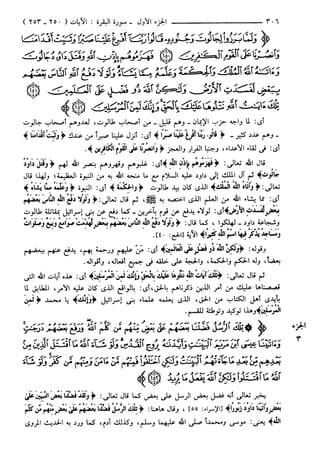 ٣٠٦ الجزء الأول - سورة البقرة : الآيات ( ٢٥٠ - ٢٥٣ )
﴿ وَلَمَّا بَرَزُوا لِجَالُوتَ وَجُنُودِهِ قَالُوا رَبَّنَا أَفْرِغْ عَلَيْنَا صَبْرًا وَثَبِّتْ أَقْدَامَنَا
وَانصُرْنَا عَلَى الْقَوْمِ الْكَافِرِينَ ۝ فَهَزَمُوهُم بِإِذْنِ اللَّهِ وَقَتَلَ دَاوُدُ جَالُوتَ
وَآتَاهُ اللَّهُ الْمُلْكَ وَالْحِكْمَةَ وَعَلَّمَهُ مِمَّا يَشَاءُ وَلَوْلَا دَفْعُ اللَّهِ النَّاسَ بَعْضَهُم
بِبَعْضٍ لَّفَسَدَتِ الْأَرْضُ وَلَٰكِنَّ اللَّهَ ذُو فَضْلٍ عَلَى الْعَالَمِينَ ۝
تِلْكَ آيَاتُ اللَّهِ نَتْلُوهَا عَلَيْكَ بِالْحَقِّ وَإِنَّكَ لَمِنَ الْمُرْسَلِينَ ۝ ﴾
أي : لما واجه حزب الإيمان - وهم قليل - من أصحاب طالوت ، لعدوهم أصحاب جالوت
- وهم عدد كثير - ﴿ قَالُوا رَبَّنَا أَفْرِغْ عَلَيْنَا صَبْرًا ﴾ أي : أنزل علينا صبراً من عندك ﴿ وَثَبِّتْ أَقْدَامَنَا ﴾
أي : في لقاء الأعداء ، وجنبنا الفرار والعجز ﴿ وَانصُرْنَا عَلَى الْقَوْمِ الْكَافِرِينَ ﴾ .
قال الله تعالى : ﴿ فَهَزَمُوهُم بِإِذْنِ اللَّهِ ﴾ أي : غلبوهم وقهروهم بنصر الله لهم ﴿ وَقَتَلَ دَاوُدُ
جَالُوتَ ﴾ ثم آل الملك إلى داود عليه السلام مع ما منحه الله به من النبوة العظيمة ، ولهذا قال
تعالى : ﴿ وَآتَاهُ اللَّهُ الْمُلْكَ ﴾ الذي كان بيد طالوت ﴿ وَالْحِكْمَةَ ﴾ أي : النبوة ﴿ وَعَلَّمَهُ مِمَّا يَشَاءُ ﴾
أي : مما يشاء الله من العلم الذي اختصه به ، ثم قال تعالى : ﴿ وَلَوْلَا دَفْعُ اللَّهِ النَّاسَ بَعْضَهُم
بِبَعْضٍ لَّفَسَدَتِ الْأَرْضُ ﴾ أي : لولاه يدفع عن قوم بآخرين - كما دفع عن بني إسرائيل بمقاتلة طالوت
وشجاعة داود - لهلكوا ، كما قال : ﴿ وَلَوْلَا دَفْعُ اللَّهِ النَّاسَ بَعْضَهُم بِبَعْضٍ لَّهُدِّمَتْ صَوَامِعُ وَبِيَعٌ وَصَلَوَاتٌ
وَمَسَاجِدُ يُذْكَرُ فِيهَا اسْمُ اللَّهِ كَثِيرًا ﴾ الآية [الحج : ٤٠] .
وقوله : ﴿ وَلَٰكِنَّ اللَّهَ ذُو فَضْلٍ عَلَى الْعَالَمِينَ ﴾ أي : منّ عليهم ورحمة بهم ، يدفع عنهم ببعضهم
بعضاً ، وله الحكم والحكمة ، والحجة على خلقه في جميع أفعاله ، وأقواله .
ثم قال تعالى : ﴿ تِلْكَ آيَاتُ اللَّهِ نَتْلُوهَا عَلَيْكَ بِالْحَقِّ وَإِنَّكَ لَمِنَ الْمُرْسَلِينَ ﴾ أي : هذه آيات الله التي
قصصناها عليك من أمر الذين ذكرناهم بالحق ، أي : بالواقع الذي كان عليه الأمر ، المطابق لما
بأيدي أهل الكتاب من الحق ، الذي يعلمه علماء بني إسرائيل ﴿ وَإِنَّكَ ﴾ يا محمد ﴿ لَمِنَ
الْمُرْسَلِينَ ﴾ وهذا توكيد وتوطئة للقسم .
الجزء ٣
﴿ تِلْكَ الرُّسُلُ فَضَّلْنَا بَعْضَهُمْ عَلَىٰ بَعْضٍ مِّنْهُم مَّن كَلَّمَ اللَّهُ وَرَفَعَ بَعْضَهُمْ دَرَجَاتٍ
وَآتَيْنَا عِيسَى ابْنَ مَرْيَمَ الْبَيِّنَاتِ وَأَيَّدْنَاهُ بِرُوحِ الْقُدُسِ وَلَوْ شَاءَ اللَّهُ مَا اقْتَتَلَ الَّذِينَ مِن
بَعْدِهِم مِّن بَعْدِ مَا جَاءَتْهُمُ الْبَيِّنَاتُ وَلَٰكِنِ اخْتَلَفُوا فَمِنْهُم مَّنْ آمَنَ وَمِنْهُم مَّن كَفَرَ وَلَوْ شَاءَ
اللَّهُ مَا اقْتَتَلُوا وَلَٰكِنَّ اللَّهَ يَفْعَلُ مَا يُرِيدُ ۝ ﴾
يخبر تعالى أنه فضل بعض الرسل على بعض كما قال تعالى : ﴿ وَلَقَدْ فَضَّلْنَا بَعْضَ النَّبِيِّينَ عَلَىٰ
بَعْضٍ وَآتَيْنَا دَاوُدَ زَبُورًا ﴾ [الإسراء : ٥٥] ، وقال هاهنا : ﴿ تِلْكَ الرُّسُلُ فَضَّلْنَا بَعْضَهُمْ عَلَىٰ بَعْضٍ مِّنْهُم مَّن كَلَّمَ
اللَّهُ ﴾ يعني : موسى ومحمداً صلى الله عليهما وسلم ، وكذلك آدم ، كما ورد به الحديث المروي